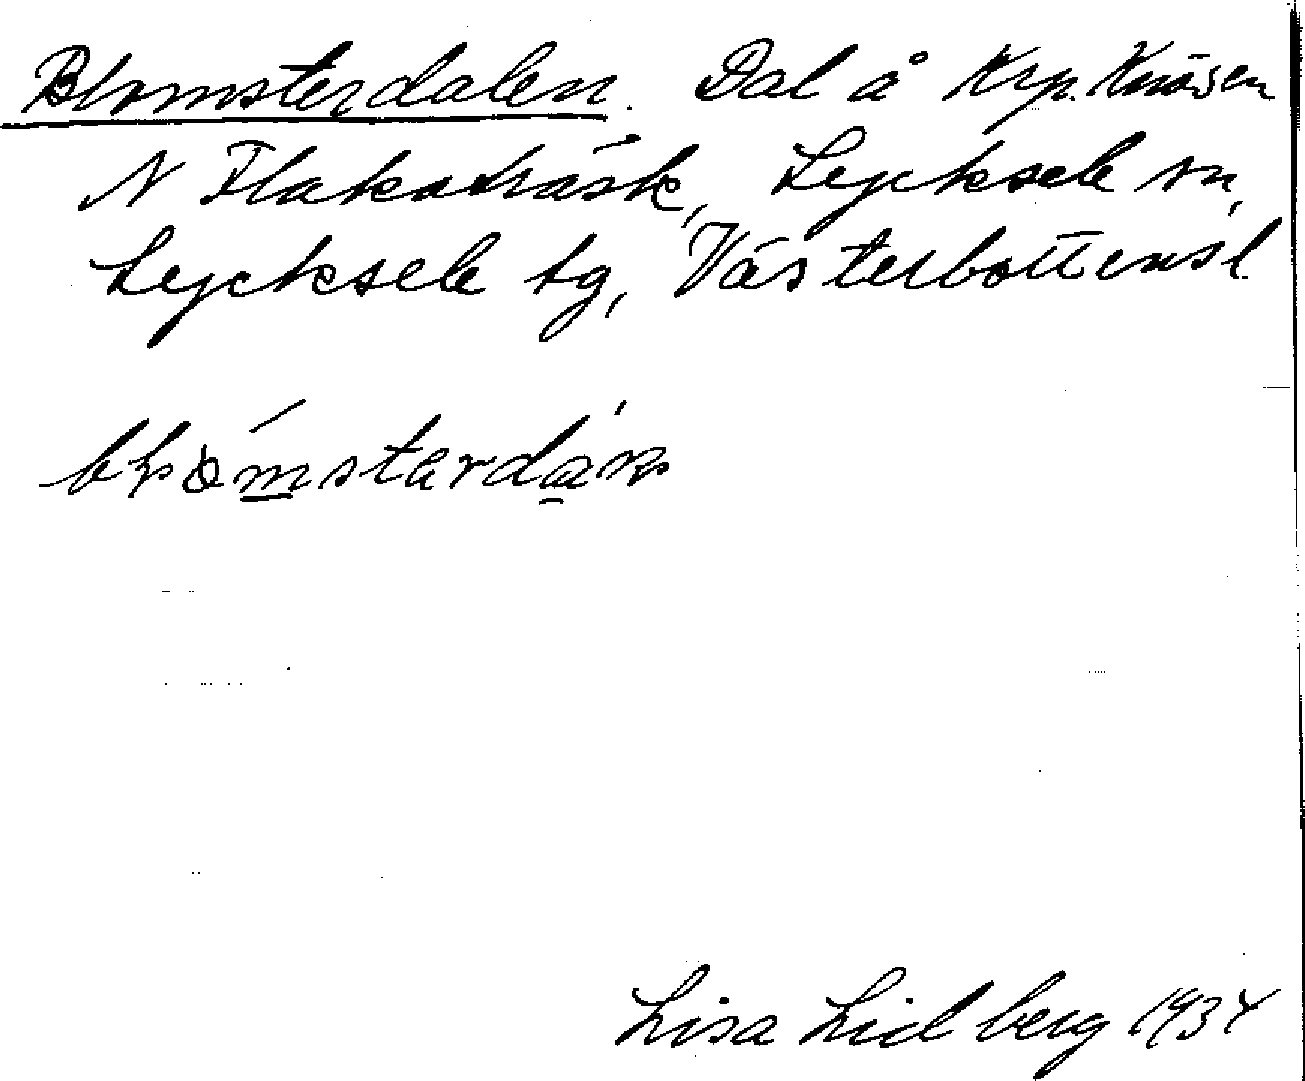 Blomsterdalen. Dal å Krp. Knösen
N Flakaträsk, Lycksele sn,
Lycksele tg, Västerbottensl
Lisa Lidberg 1934